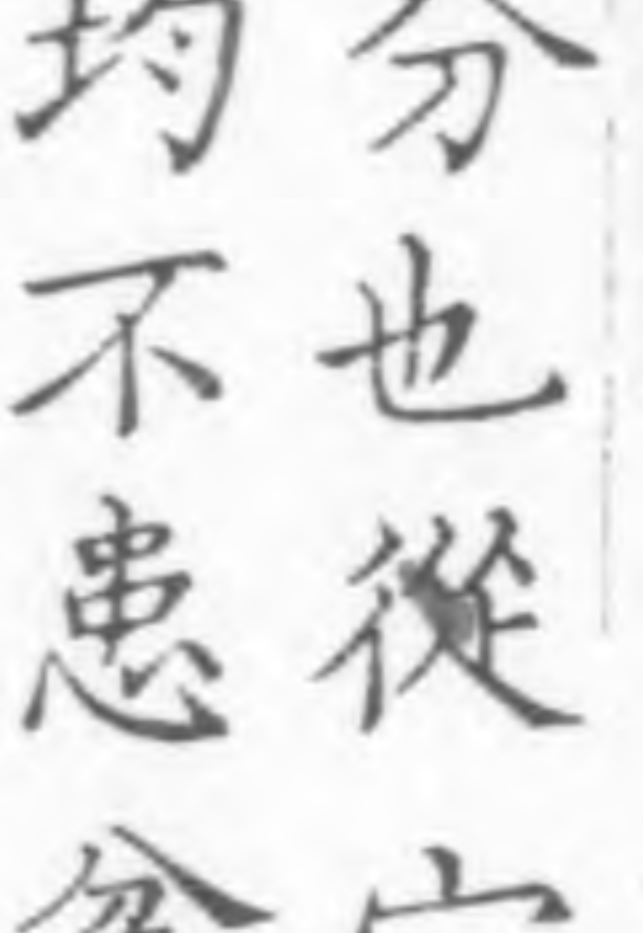 分也從
均不患